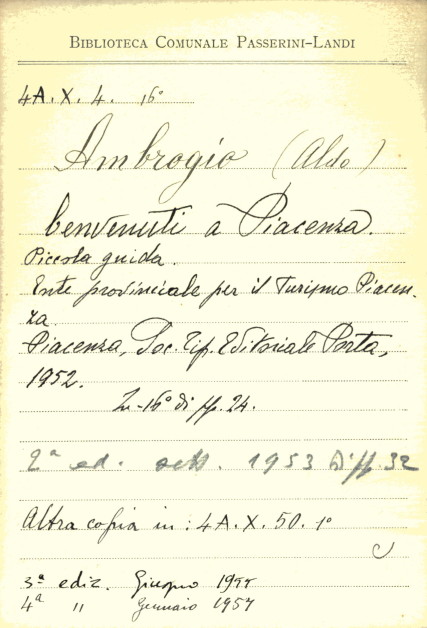 BIBLIOTECA COMUNALE PASSERINI-LANDI
4A.X.4. 16°
Ambrogio (Aldo)
benvenuti a Piacenza.
Piccola guida.
Ente provinciale per il Turismo Piacen-
za
Piacenza, Soc. Tip. Editoriale Porta,
1952.
In-16° di pp. 24.
2ª ed. sett. 1953 Di pp. 32
Altra copia in: 4A.X.50. 1°
3ª ediz. Giugno
4ª " Gennaio 1957